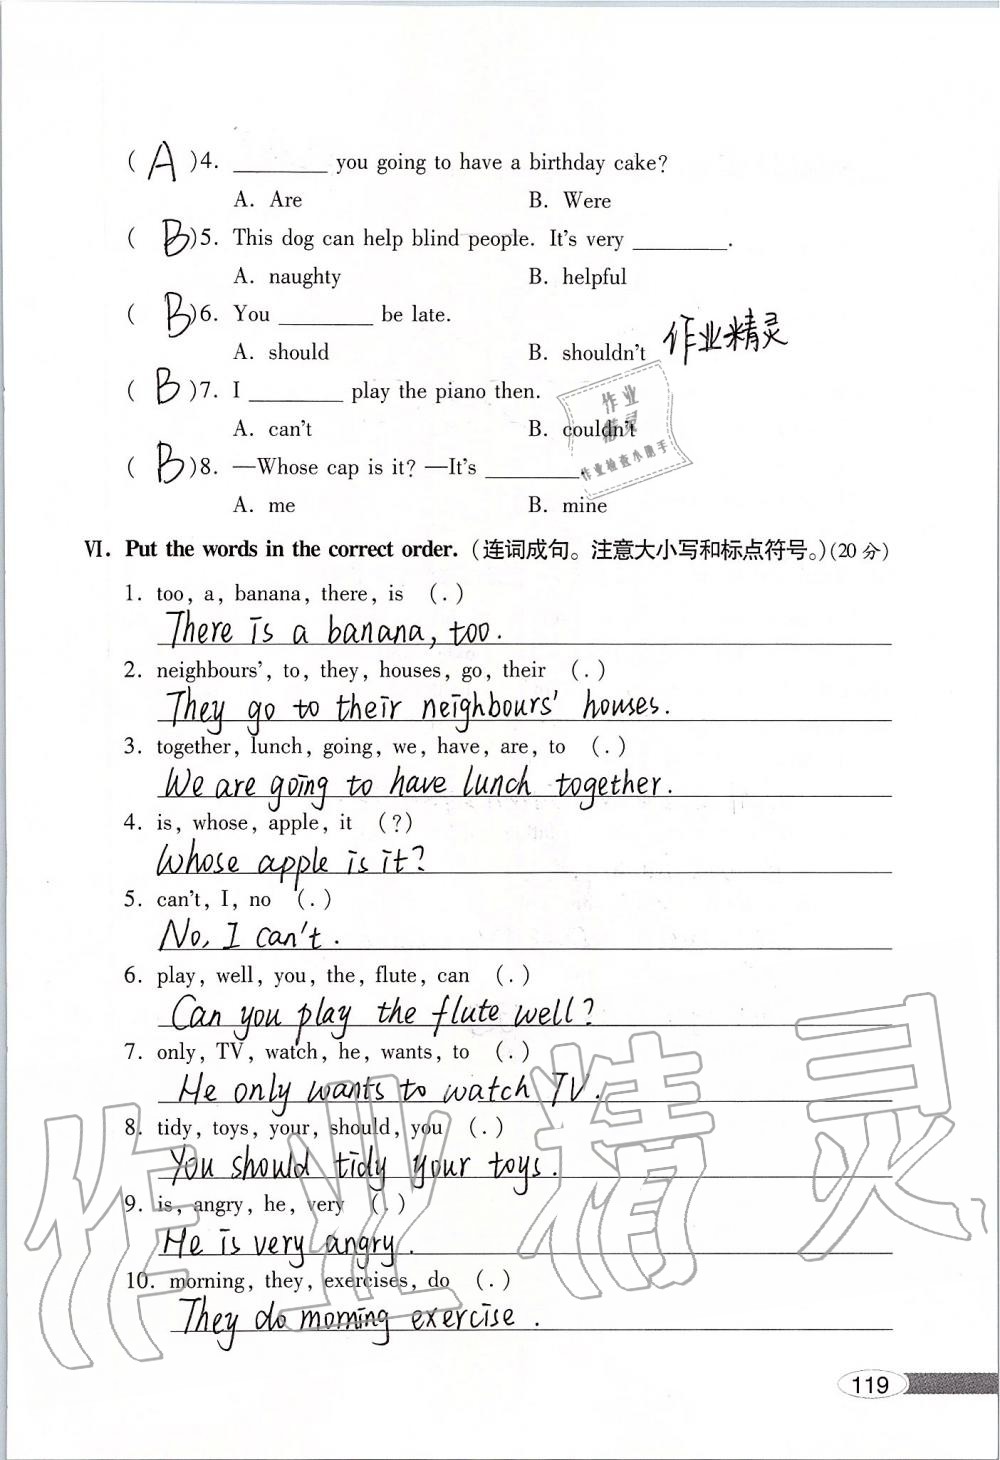 ( A )4. ________ you going to have a birthday cake?
A. Are B. Were
( B )5. This dog can help blind people. It's very ________.
A. naughty B. helpful
( B )6. You ________ be late.
A. should B. shouldn't
作业精灵
( B )7. I ________ play the piano then.
A. can't B. couldn't
作业
精灵
作业检查小助手
( B )8. —Whose cap is it? —It's ________.
A. me B. mine
Ⅵ. Put the words in the correct order. (连词成句。注意大小写和标点符号。)(20分)
1. too, a, banana, there, is (.)
There is a banana, too.
2. neighbours', to, they, houses, go, their (.)
They go to their neighbours' houses.
3. together, lunch, going, we, have, are, to (.)
We are going to have lunch together.
4. is, whose, apple, it (?)
Whose apple is it?
5. can't, I, no (.)
No, I can't.
6. play, well, you, the, flute, can (.)
Can you play the flute well?
7. only, TV, watch, he, wants, to (.)
He only wants to watch TV.
8. tidy, toys, your, should, you (.)
You should tidy your toys.
9. is, angry, he, very (.)
He is very angry.
10. morning, they, exercises, do (.)
They do morning exercise.
作业精灵
119